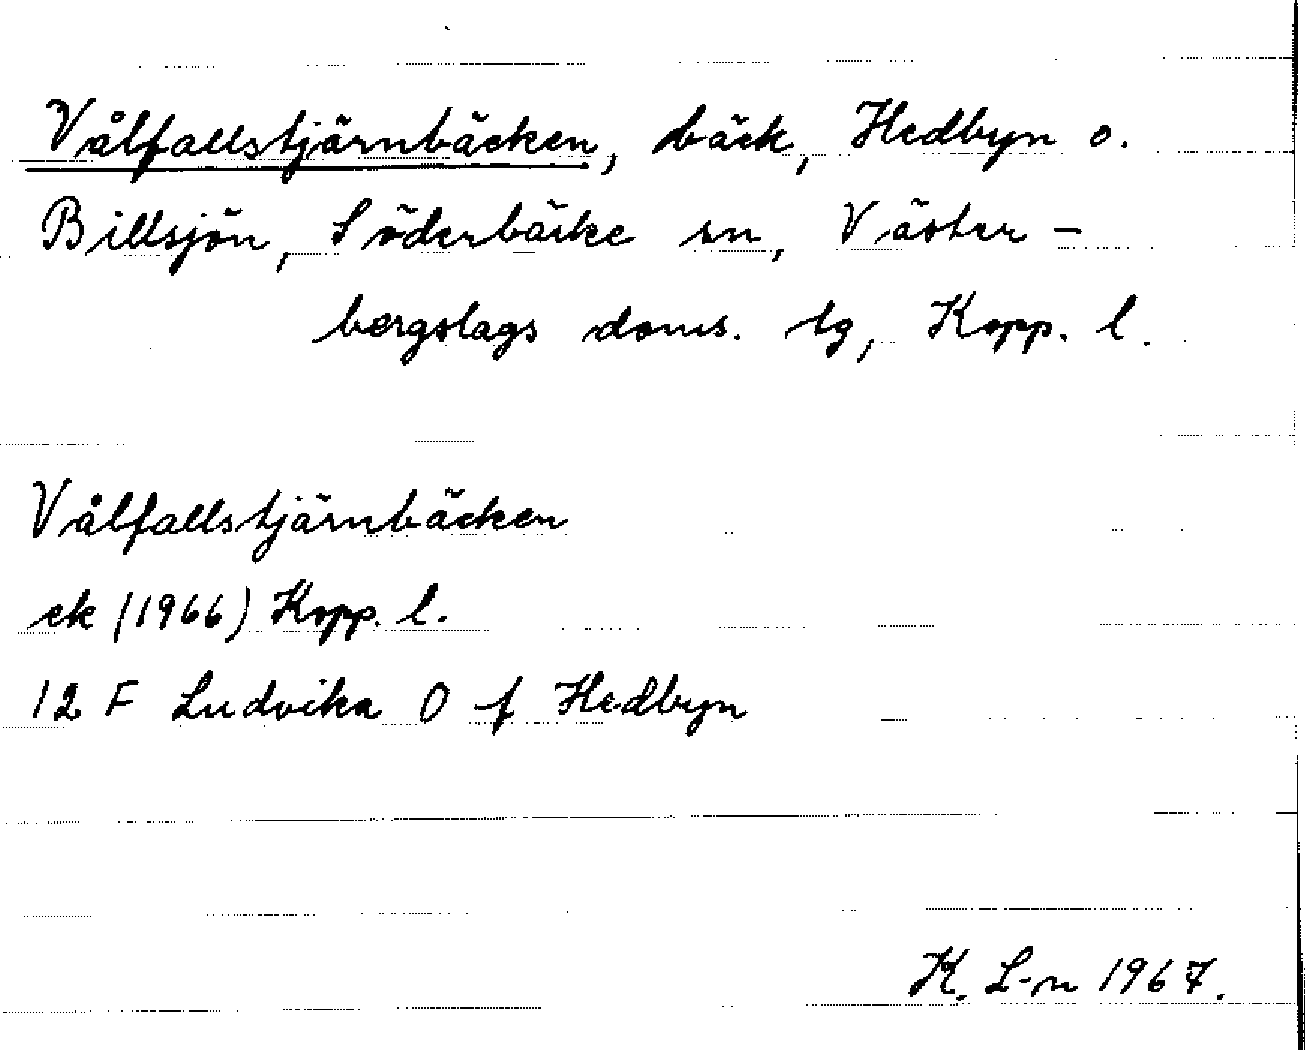 Vålfallstjärnbäcken, bäck, Hedbyn o.
Billsjön, Söderbärke sn, Väster-
bergslags doms. tg, Kopp. l.
Vålfallstjärnbäcken
ek (1966) Kopp. l.
12 F Ludvika O f Hedbyn
K. L-n 1967.